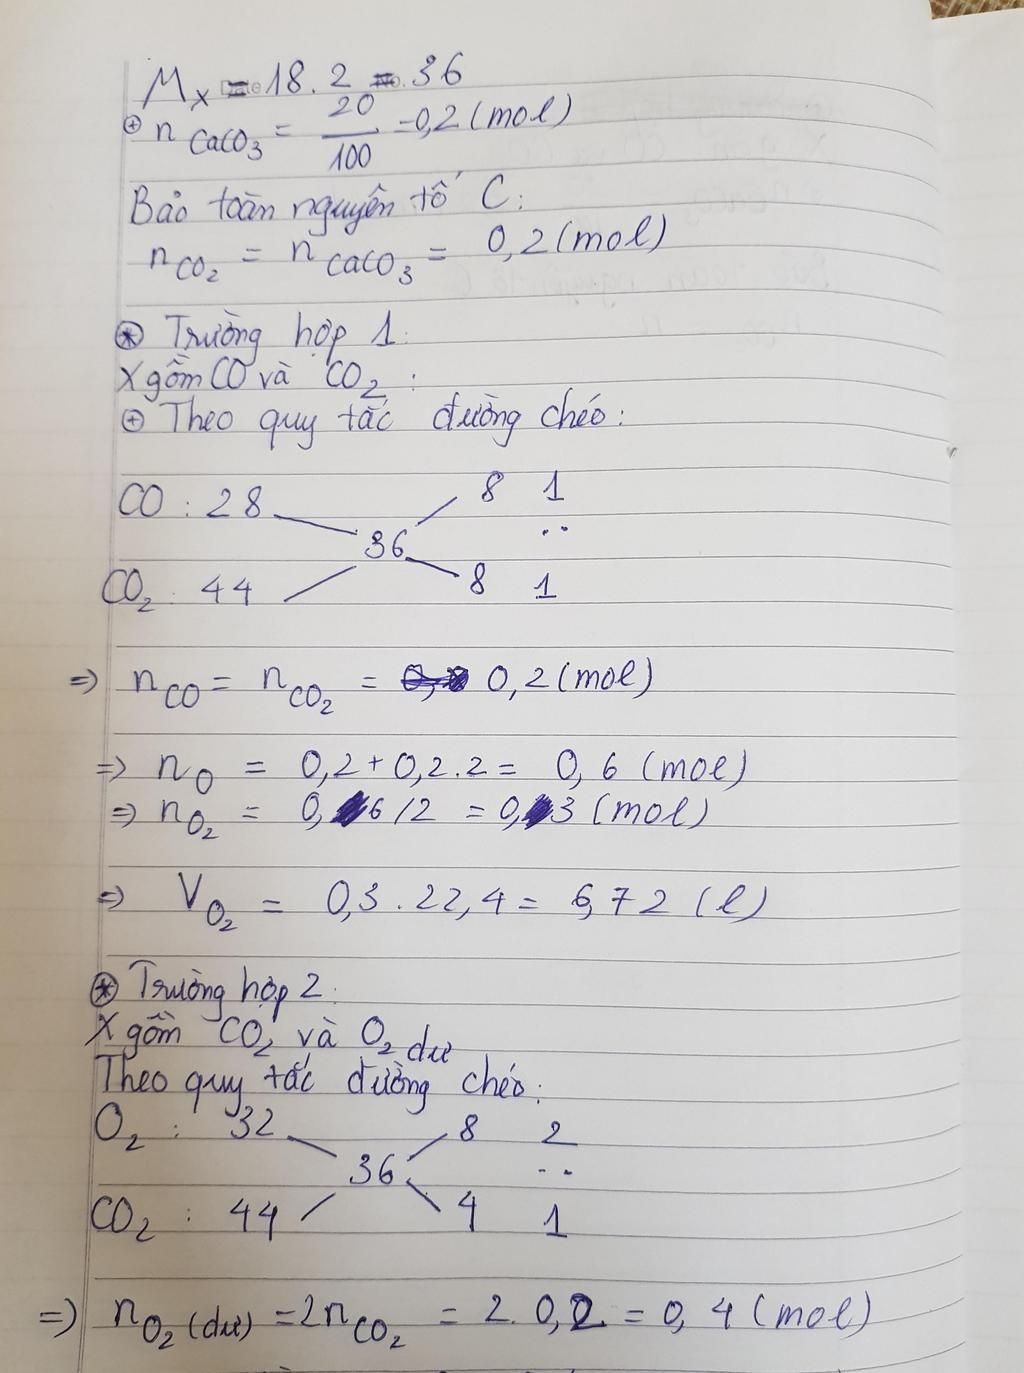 M_X = 18.2 = 36
⊕ n CaCO₃ = 20/100 = 0,2 (mol)
Bảo toàn nguyên tố C:
n CO₂ = n CaCO₃ = 0,2 (mol)
⊛ Trường hợp 1:
X gồm CO và CO₂ :
⊕ Theo quy tắc đường chéo:
CO : 28 8 1
36 ..
CO₂ : 44 8 1
=> n CO = n CO₂ = 0,2 (mol)
=> n O = 0,2 + 0,2.2 = 0,6 (mol)
=> n O₂ = 0,6/2 = 0,3 (mol)
=> V O₂ = 0,3 . 22,4 = 6,72 (l)
⊛ Trường hợp 2:
X gồm CO₂ và O₂ dư
Theo quy tắc đường chéo:
O₂ : 32 8 2
36 ..
CO₂ : 44 4 1
=> n O₂ (dư) = 2n CO₂ = 2. 0,2 = 0,4 (mol)